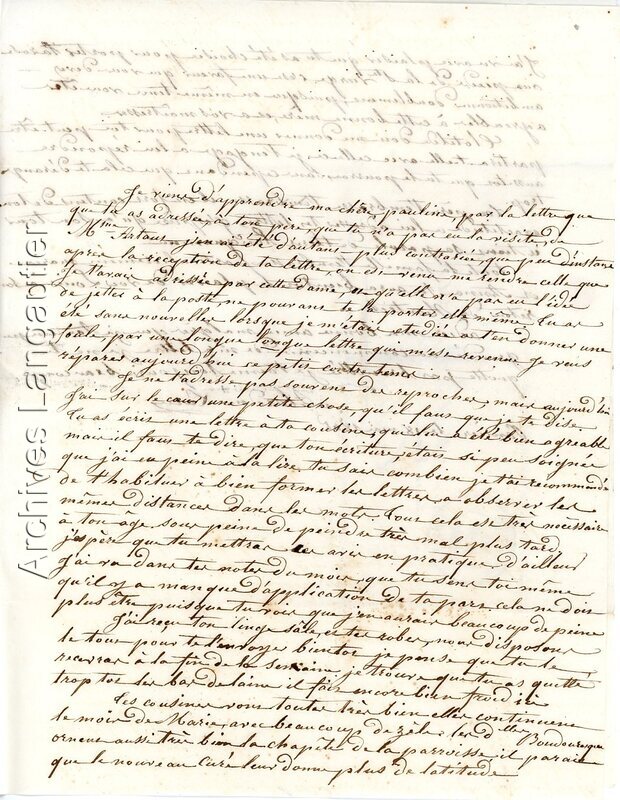 Je viens d'apprendre ma chère pauline, par la lettre que
que tu as adressée à ton père, que tu n'a pas eu la visite, de
Mme Artaud, j'en ai été d'autant plus contrariée, que peu d'instant
après la reception de ta lettre, on est venu me rendre celle que
Je t'avais adressée par cette dame, et qu'elle n'a pas eu l'idée
de jetter à la poste, ne pouvant te la porter elle même. Tu as
été sans nouvelles lorsque je m'étais étudiée à t'en donner une
foule, par un longue longue lettre qui m'est revenue Je veus
réparer aujourd'hui ce petit contre tems
Je ne t'adresse pas souvent des reproches, mais aujourd'hui
J'ai sur le cœur une petite chose, qu'il faut que je te dise.
Tu as écrit une lettre à ta cousine, qui lui a été bien agréable
mais il faut te dire, que ton écriture, était si peu soignée
que j'ai eu peine à la lire, tu sais combien je t'ai recommandé
de t'habituer à bien former les lettres, à observer les
mêmes distances dans les mots. Tous cela est très nécessaire
à ton age, sous peine de peindre très mal plus tard,
j'espère que tu mettras ces avis en pratique, d'ailleurs
J'ai vu dans tes notes du mois, que tu sens toi même
qu'il y a manque d'application de ta part, cela ne doit
plus être puisque tu vois que j'en aurais beaucoup de peine
J'ai reçu ton linge sâle, et tes robes, nous disposons
le tout pour te l'envoyer bientôt, je pense que tu le
recevras à la fin de la semaine, je trouve que tu as quitté
trop tôt les bas de laine il fait encore bien froid ici
Les cousines vont toutes très bien elles continuent
le mois de Marie, avec beaucoup de zele, les dlles Boudouresque
ornent aussi très bien la chapelle de la parroisse, il parait
que le nouveau curé leur donne plus de latitude
Archives Langautier